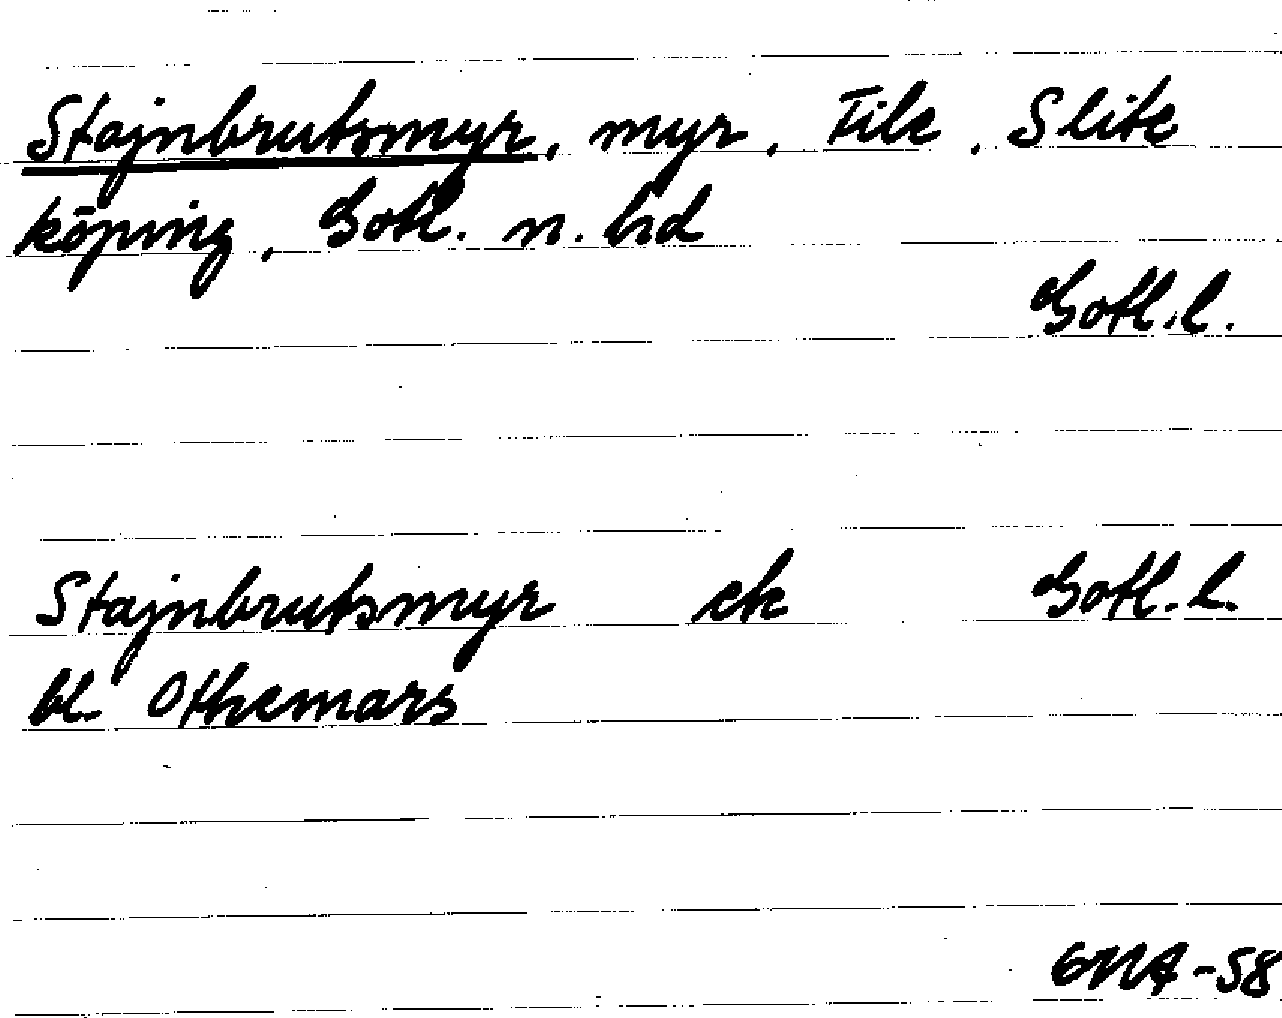 Stajnbrutsmyr, myr, File, Slite
köping, Gotl. n. hd
Gotl.l.
Stajnbrutsmyr ek Gotl.l.
bl. Othemars
GNA-58